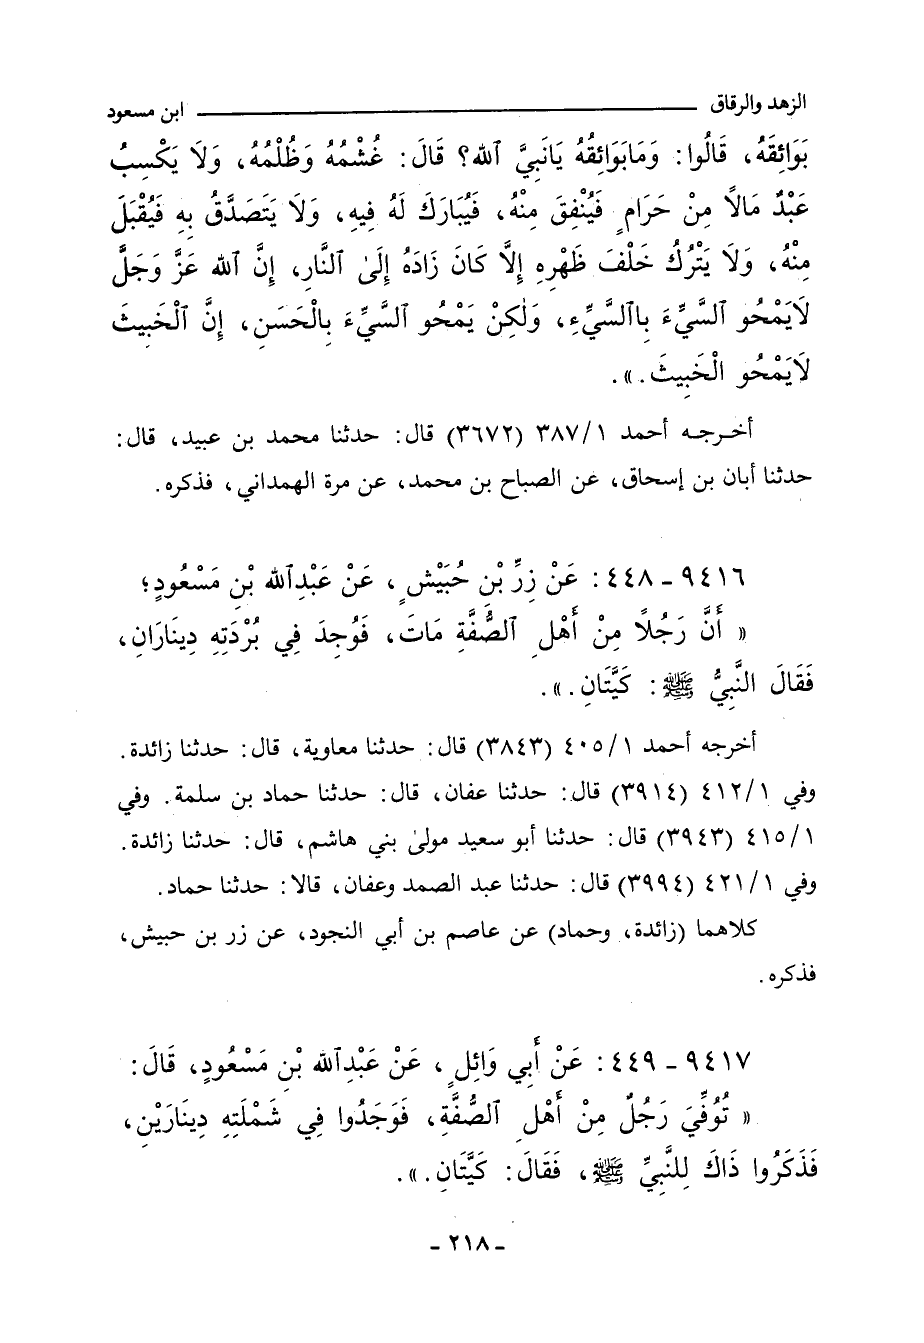 الزهد والرقاق ــــــــــــــــــــــــــــ ابن مسعود
بَوَائِقَهُ، قَالُوا: وَمَابَوَائِقُهُ يَانَبِيَّ ٱلله؟ قَالَ: غُشْمُهُ وَظُلْمُهُ، وَلَا يَكْسِبُ
عَبْدٌ مَالًا مِنْ حَرَامٍ فَيُنْفِقَ مِنْهُ، فَيُبَارَكَ لَهُ فِيهِ، وَلَا يَتَصَدَّقُ بِهِ فَيُقْبَلَ
مِنْهُ، وَلَا يَتْرُكُ خَلْفَ ظَهْرِهِ إِلَّا كَانَ زَادَهُ إِلَىٰ ٱلنَّارِ، إِنَّ ٱلله عَزَّ وَجَلَّ
لَايَمْحُو ٱلسَّيِّءَ بِاٱلسَّيِّءِ، وَلٰكِنْ يَمْحُو ٱلسَّيِّءَ بِالْحَسَنِ، إِنَّ ٱلْخَبِيثَ
لَايَمْحُو الْخَبِيثَ.».
أخرجه أحمد ٣٨٧/١ (٣٦٧٢) قال: حدثنا محمد بن عبيد، قال:
حدثنا أبان بن إسحاق، عن الصباح بن محمد، عن مرة الهمداني، فذكره.
٩٤١٦ - ٤٤٨: عَنْ زِرِّ بْنِ حُبَيْشٍ، عَنْ عَبْدِٱلله بْنِ مَسْعُودٍ؛
« أَنَّ رَجُلًا مِنْ أَهْلِ ٱلصُّفَّةِ مَاتَ، فَوُجِدَ فِي بُرْدَتِهِ دِينَارَانِ،
فَقَالَ النَّبِيُّ ﷺ: كَيَّتَانِ.».
أخرجه أحمد ٤٠٥/١ (٣٨٤٣) قال: حدثنا معاوية، قال: حدثنا زائدة.
وفي ٤١٢/١ (٣٩١٤) قال: حدثنا عفان، قال: حدثنا حماد بن سلمة. وفي
٤١٥/١ (٣٩٤٣) قال: حدثنا أبو سعيد مولىٰ بني هاشم، قال: حدثنا زائدة.
وفي ٤٢١/١ (٣٩٩٤) قال: حدثنا عبد الصمد وعفان، قالا: حدثنا حماد.
كلاهما (زائدة، وحماد) عن عاصم بن أبي النجود، عن زر بن حبيش،
فذكره.
٩٤١٧ - ٤٤٩: عَنْ أَبِي وَائِلٍ، عَنْ عَبْدِٱلله بْنِ مَسْعُودٍ، قَالَ:
« تُوُفِّيَ رَجُلٌ مِنْ أَهْلِ ٱلصُّفَّةِ، فَوَجَدُوا فِي شَمْلَتِهِ دِينَارَيْنِ،
فَذَكَرُوا ذَاكَ لِلنَّبِيِّ ﷺ، فَقَالَ: كَيَّتَانِ.».
- ٢١٨ -